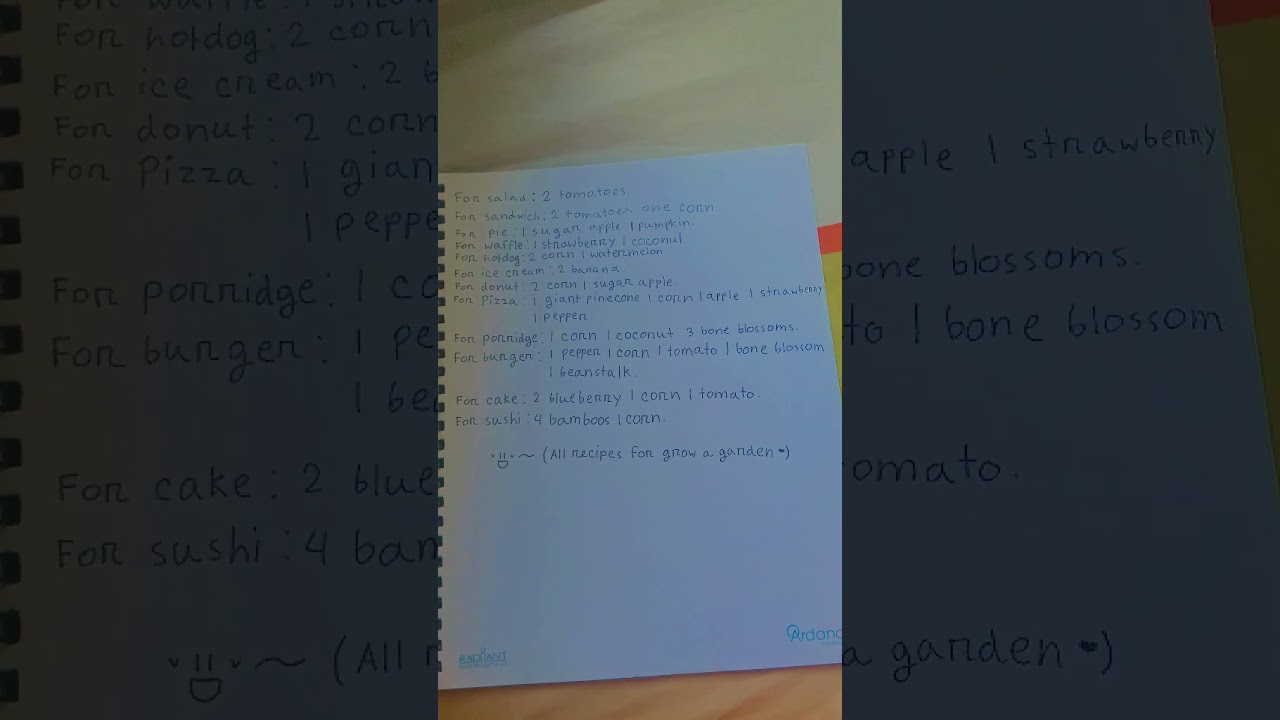 For salad: 2 tomatoes.
For sandwich: 2 tomatoes one corn.
For pie: 1 sugar apple 1 pumpkin.
For waffle: 1 strawberry 1 coconut
For hotdog: 2 corn 1 watermelon
For ice cream: 2 banana
For donut: 2 corn 1 sugar apple.
For Pizza: 1 giant pinecone 1 corn 1 apple 1 strawberry
1 pepper
For porridge: 1 corn 1 coconut 3 bone blossoms.
For burger: 1 pepper 1 corn 1 tomato 1 bone blossom
1 beanstalk.
For cake: 2 blueberry 1 corn 1 tomato.
For sushi: 4 bamboos 1 corn.
(All recipes for grow a garden)
RADIANT
Ardan